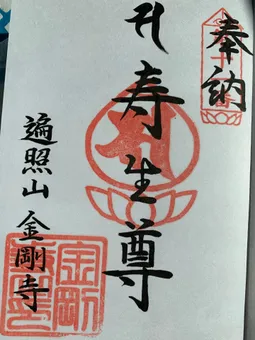 奉納
寿生尊
遍照山 金剛寺